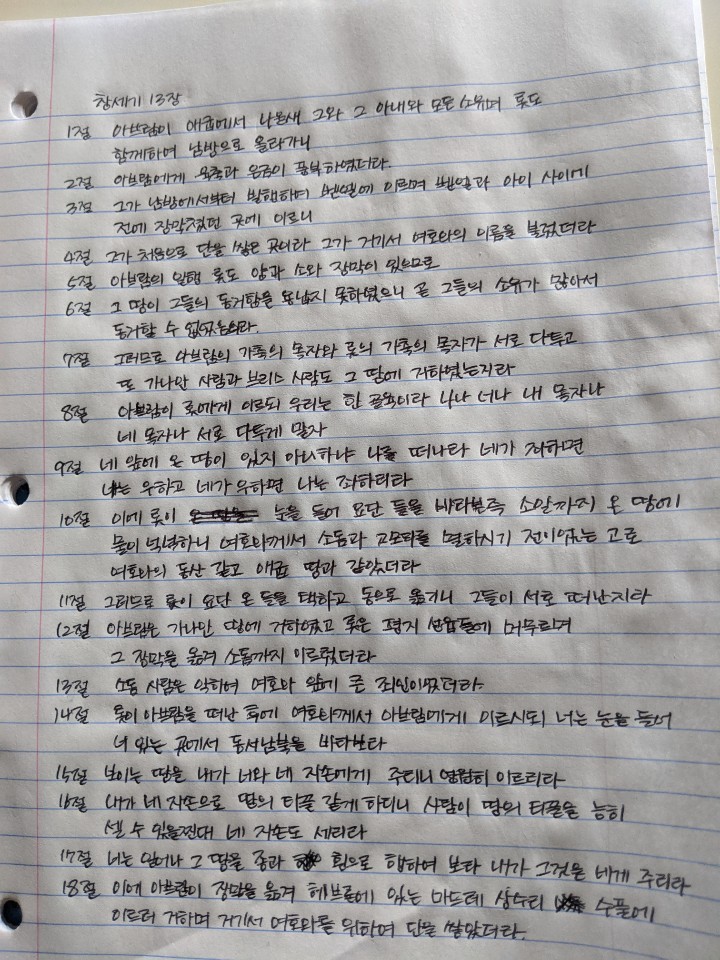 창세기 13장
1절 아브람이 애굽에서 나올새 그와 그 아내와 모든 소유며 롯도
함께하여 남방으로 올라가니
2절 아브람에게 육축과 은금이 풍부하였더라.
3절 그가 남방에서부터 발행하여 벧엘에 이르며 벧엘과 아이 사이에
전에 장막쳤던 곳에 이르니
4절 그가 처음으로 단을 쌓은 곳이라 그가 거기서 여호와의 이름을 불렀더라
5절 아브람의 일행 롯도 양과 소와 장막이 있으므로
6절 그 땅이 그들의 동거함을 용납지 못하였으니 곧 그들의 소유가 많아서
동거할 수 없었음이라.
7절 그러므로 아브람의 가축의 목자와 롯의 가축의 목자가 서로 다투고
또 가나안 사람과 브리스 사람도 그 땅에 거하였는지라
8절 아브람이 롯에게 이르되 우리는 한 골육이라 나나 너나 내 목자나
네 목자나 서로 다투게 말자
9절 네 앞에 온 땅이 있지 아니하냐 나를 떠나라 네가 좌하면
나는 우하고 네가 우하면 나는 좌하리라
10절 이에 롯이 눈을 들어 요단 들을 바라본즉 소알까지 온 땅에
물이 넉넉하니 여호와께서 소돔과 고모라를 멸하시기 전이었는 고로
여호와의 동산 같고 애굽 땅과 같았더라
11절 그러므로 롯이 요단 온 들을 택하고 동으로 옮기니 그들이 서로 떠난지라
12절 아브람은 가나안 땅에 거하였고 롯은 평지 성읍들에 머무르며
그 장막을 옮겨 소돔까지 이르렀더라
13절 소돔 사람은 악하여 여호와 앞에 큰 죄인이었더라.
14절 롯이 아브람을 떠난 후에 여호와께서 아브람에게 이르시되 너는 눈을 들어
너 있는 곳에서 동서남북을 바라보라
15절 보이는 땅을 내가 너와 네 자손에게 주리니 영원히 이르리라
16절 내가 네 자손으로 땅의 티끌 같게 하리니 사람이 땅의 티끌을 능히
셀 수 있을찐대 네 자손도 세리라
17절 너는 일어나 그 땅을 종과 횡으로 행하여 보라 내가 그것을 네게 주리라
18절 이에 아브람이 장막을 옮겨 헤브론에 있는 마므레 상수리 수풀에
이르러 거하며 거기서 여호와를 위하여 단을 쌓았더라.